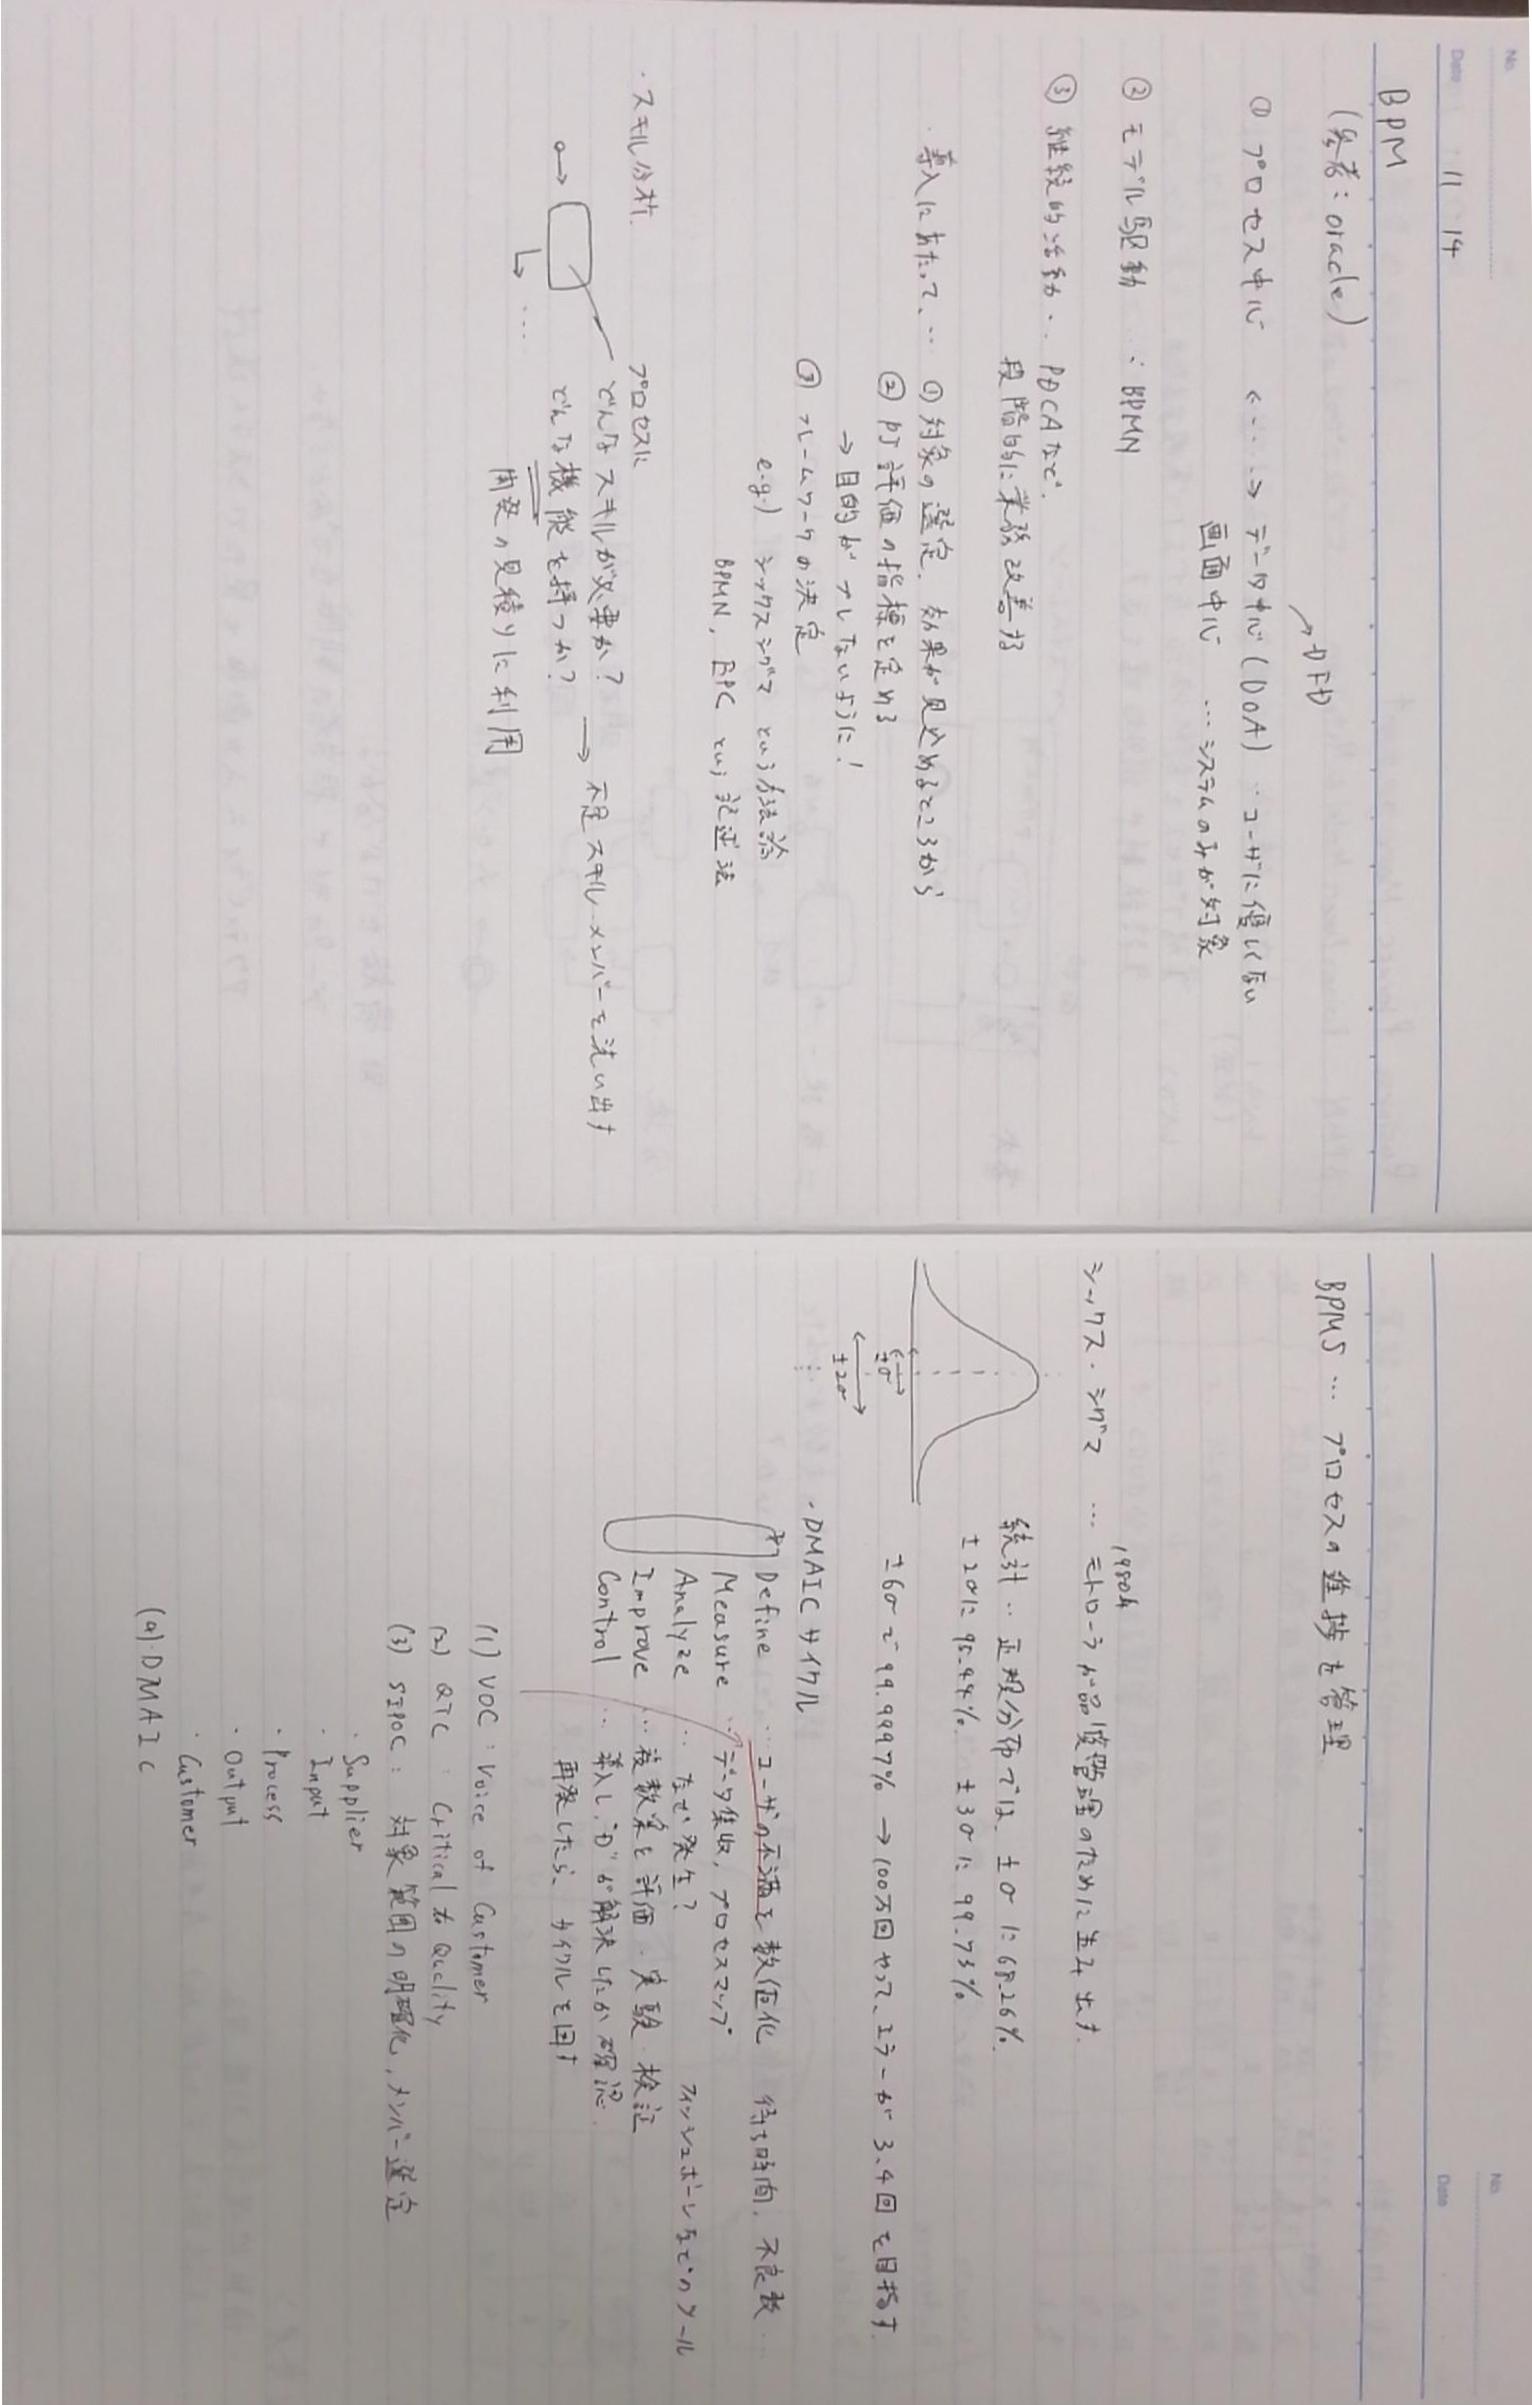 No.
Date 11 14
BPM
(参考：oracle)
→DFD
① プロセス中心 <----> データ中心(DOA) ‥ユーザに優しくない
画面中心 …システムのみが対象
② モデル駆動 ：BPMN
③ 継続的活動‥ PDCAなど.
段階的に業務改善する
導入にあたって、… ① 対象の選定. 効果が見込めるところから
② PJ評価の指標を定める
→ 目的がブレないように！
③ フレームワークの決定
e.g.) シックスシグマ という方法論
BPMN, EPC という記述法
・スキル分析.
プロセスに
どんなスキルが必要か？
→ 不足スキル メンバーを洗い出す
どんな機能を持つか？
…
開発の見積りに利用
No.
Date
BPMS … プロセスの進捗を管理
1980年
シックス・シグマ … モトローラが品質管理のために生み出す.
統計‥正規分布では、±σに68.26%.
±2σに95.44%. ±3σに99.73%
±σ
±2σ
±6σで99.9997% → 100万回やって、エラーが3.4回を目指す.
・DMAICサイクル
Define …ユーザの不満を数値化 待ち時間, 不良数…
Measure ‥データ集収, プロセスマップ
Analyze ‥ なぜ発生？ フィッシュボーンなどのツール
Improve …複数案を評価・実験・検証
Control … 導入し、"D"が解決したか確認.
再発したら、サイクルを回す
(1) VOC：Voice of Customer
(2) QTC：Critical to Quality
(3) SIPOC： 対象範囲の明確化, メンバー選定
・Supplier
・Input
・Process
・Output
・Customer
(4) DMAIC